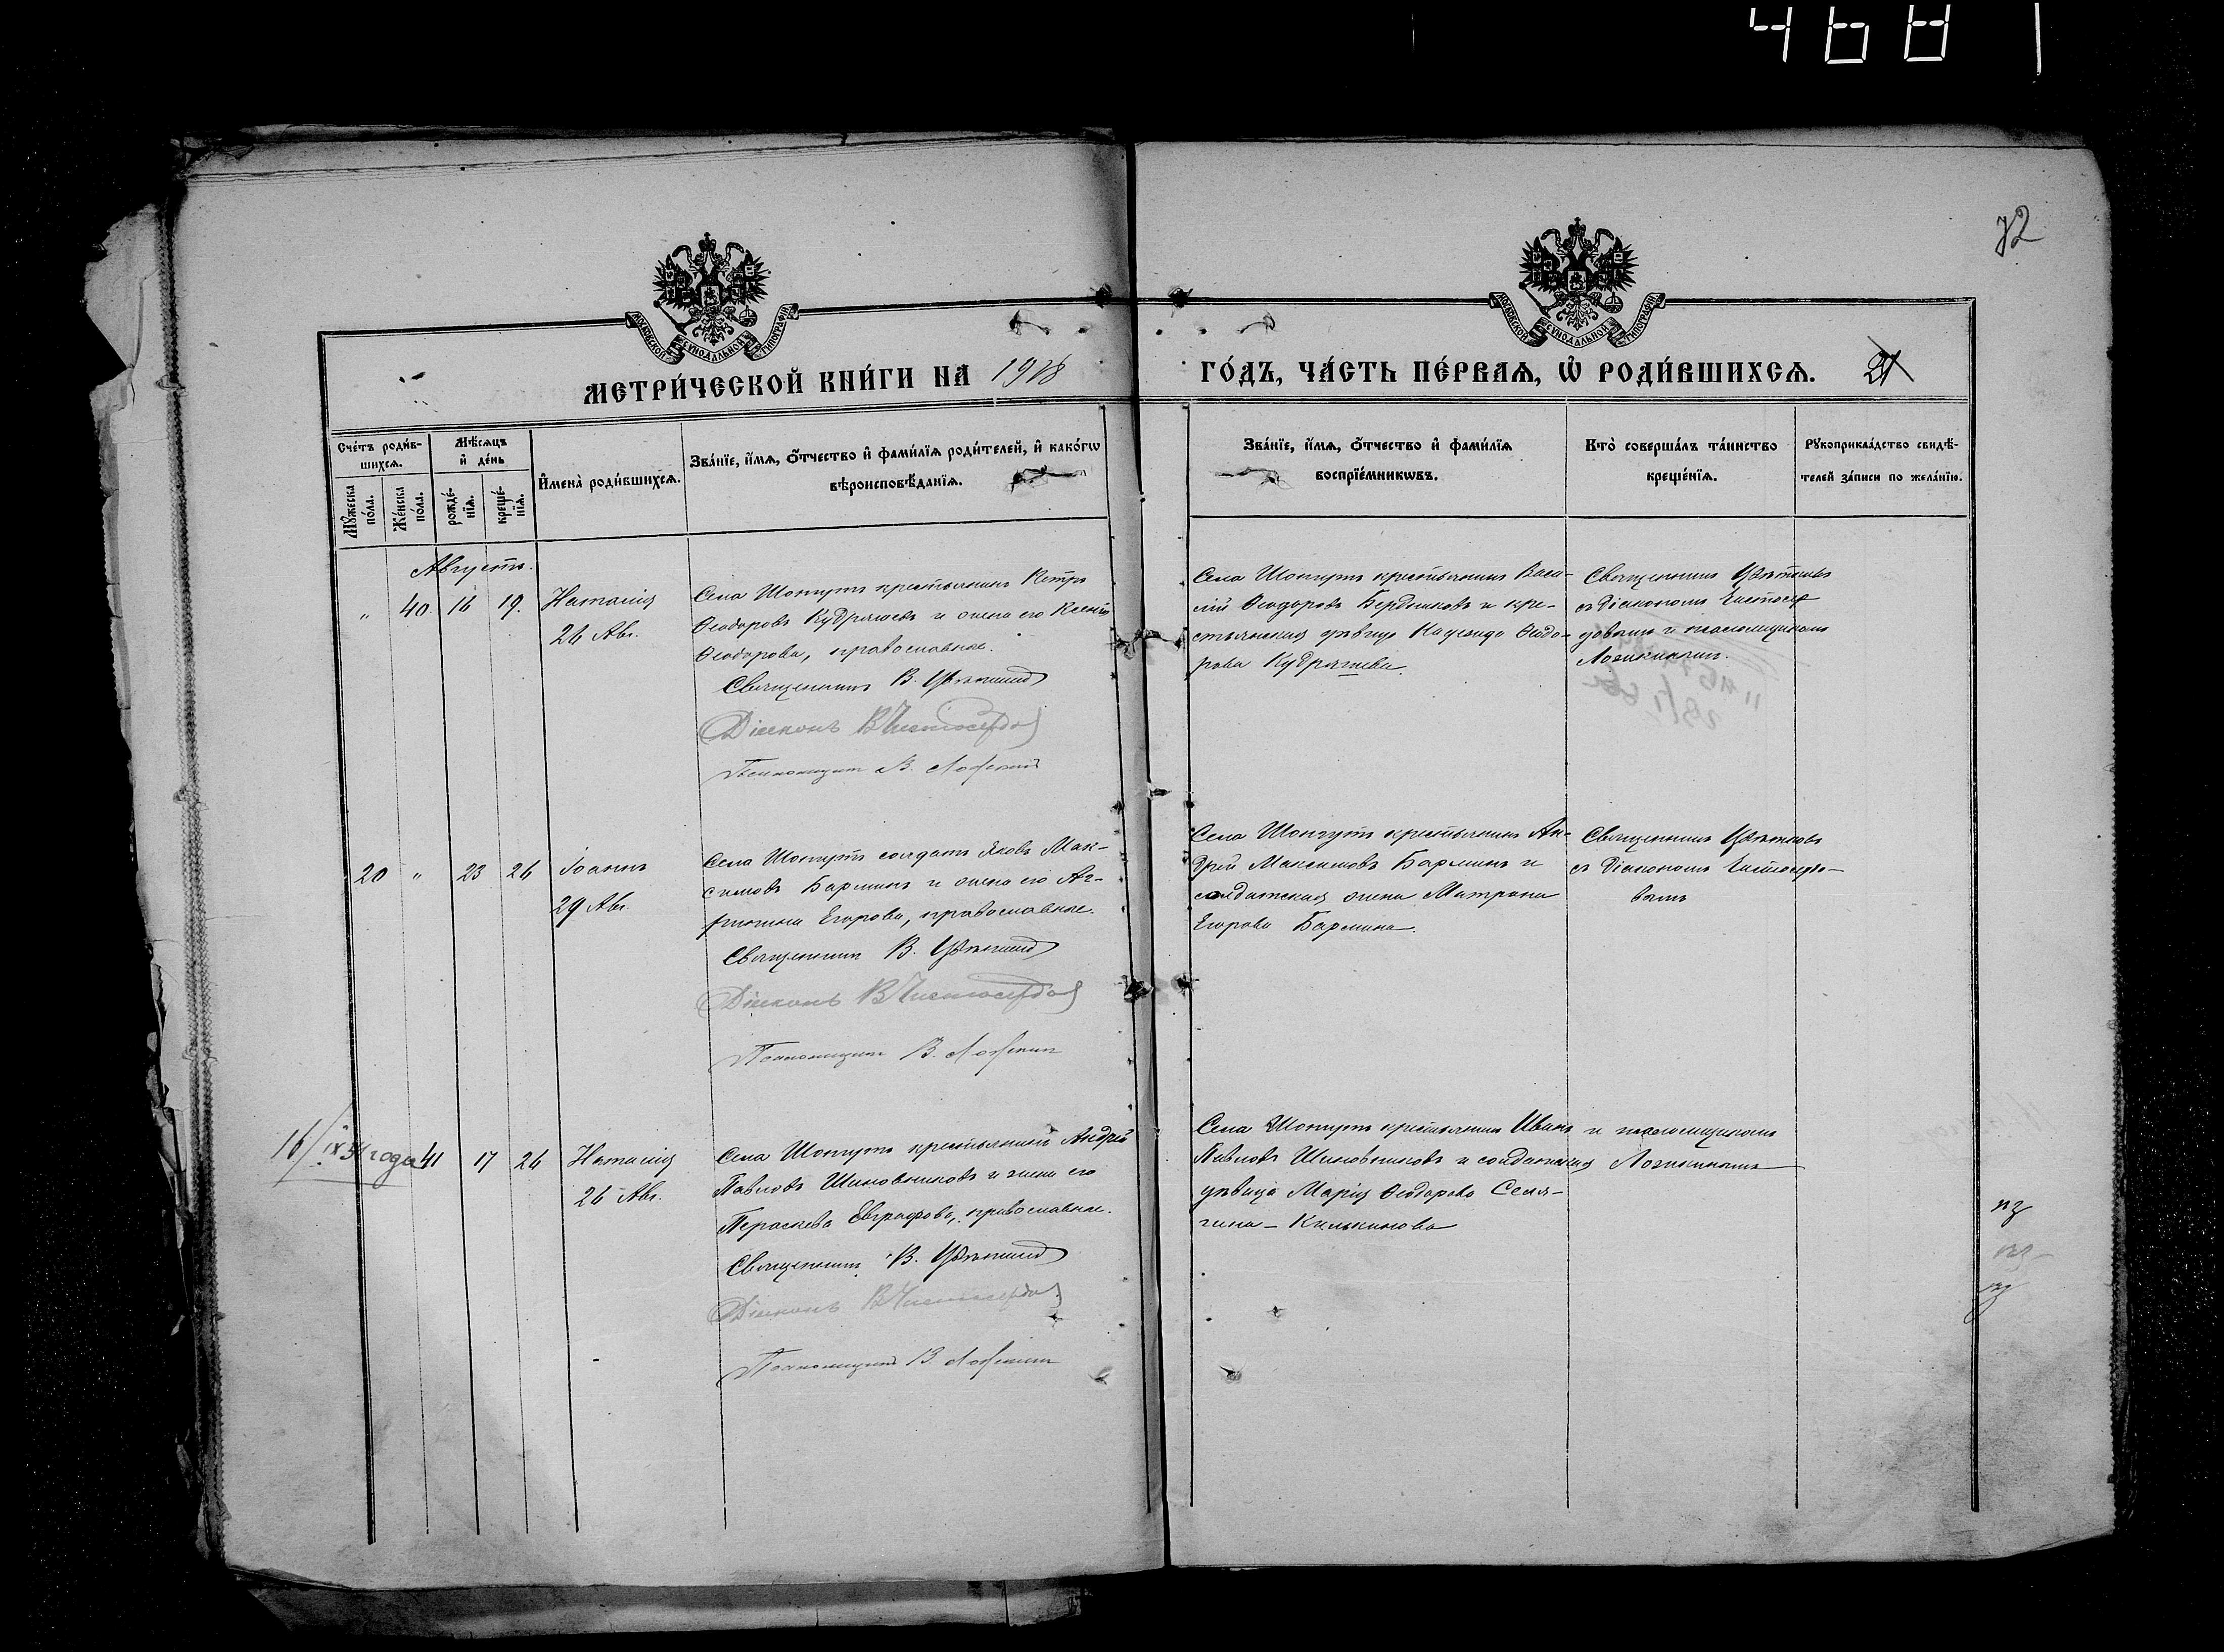 4681
72
МОСКОВСКОЙ СУНОДАЛЬНОЙ ТИПОГРАФІИ
МОСКОВСКОЙ СУНОДАЛЬНОЙ ТИПОГРАФІИ
МЕТРИ́ЧЕСКОЙ КНИ́ГИ НА 1918 ГО́ДЪ, ЧА́СТЬ ПЕ́РВАѦ, Ѡ҆ РОДИ́ВШИХСѦ. 21
Сче́тъ роди́в-
шихсѧ.
Мꙋ́жеска по́ла.
Же́нска по́ла.
Мѣ́сѧцъ
и҆ де́нь
рожде́-
нїѧ.
креще́-
нїѧ.
И҆мена̀ роди́вшихсѧ.
Зва́нїе, и҆́мѧ, о҆́тчество и҆ фами́лїѧ роди́телей, и҆ како́гѡ
вѣроисповѣ́данїѧ.
Зва́нїе, и҆́мѧ, о҆́тчество и҆ фами́лїѧ
воспрїе́мникѡвъ.
Кто̀ соверша́лъ та́инство
креще́нїѧ.
Рꙋкоприкла́дство свидѣ́-
телей за́писи по жела́нїю.
Августъ.
" 40. 16 19.
Наталія
26 Авг.
Села Шопутъ крестьянинъ Петръ
Ѳеодоровъ Кудряшевъ и жена его Ксенія
Ѳеодорова, православные.
Священникъ В. Цвѣтковъ
Діаконъ В Чистосердовъ
Псаломщикъ В. Ложкинъ
Села Шопутъ крестьянинъ Васи-
лій Ѳеодоровъ Бердниковъ и кре-
стьянская дѣвица Надежда Ѳеодо-
рова Кудряшева.
Священникъ Цвѣтковъ
съ діакономъ Чистосер
довымъ и псаломщикомъ
Ложкинымъ.
20 " 23 26
Іоаннъ
29 Авг.
Села Шопутъ солдатъ Яковъ Мак-
симовъ Барминъ и жена его Аг-
рипина Егорова, православные.
Священникъ В. Цвѣтковъ
Діаконъ В Чистосердовъ
Псаломщикъ В. Ложкинъ
Села Шопутъ крестьянинъ Ан-
дрей Максимовъ Барминъ и
солдатская жена Матрона
Егорова Бармина.
Священникъ Цвѣтковъ
съ діакономъ Чистосердо-
вымъ
41 17 26
Наталія
26 Авг.
Села Шопутъ крестьянинъ Андрей
Павловъ Шиповниковъ и жена его
Параскева Евграфова, православные.
Священникъ В. Цвѣтковъ
Діаконъ В Чистосердовъ
Псаломщикъ В. Ложкинъ
Села Шопутъ крестьянинъ Иванъ
Павловъ Шиповниковъ и солдатская
дѣвица Марія Ѳеодорова Семя-
и псаломщикомъ
Ложкинымъ